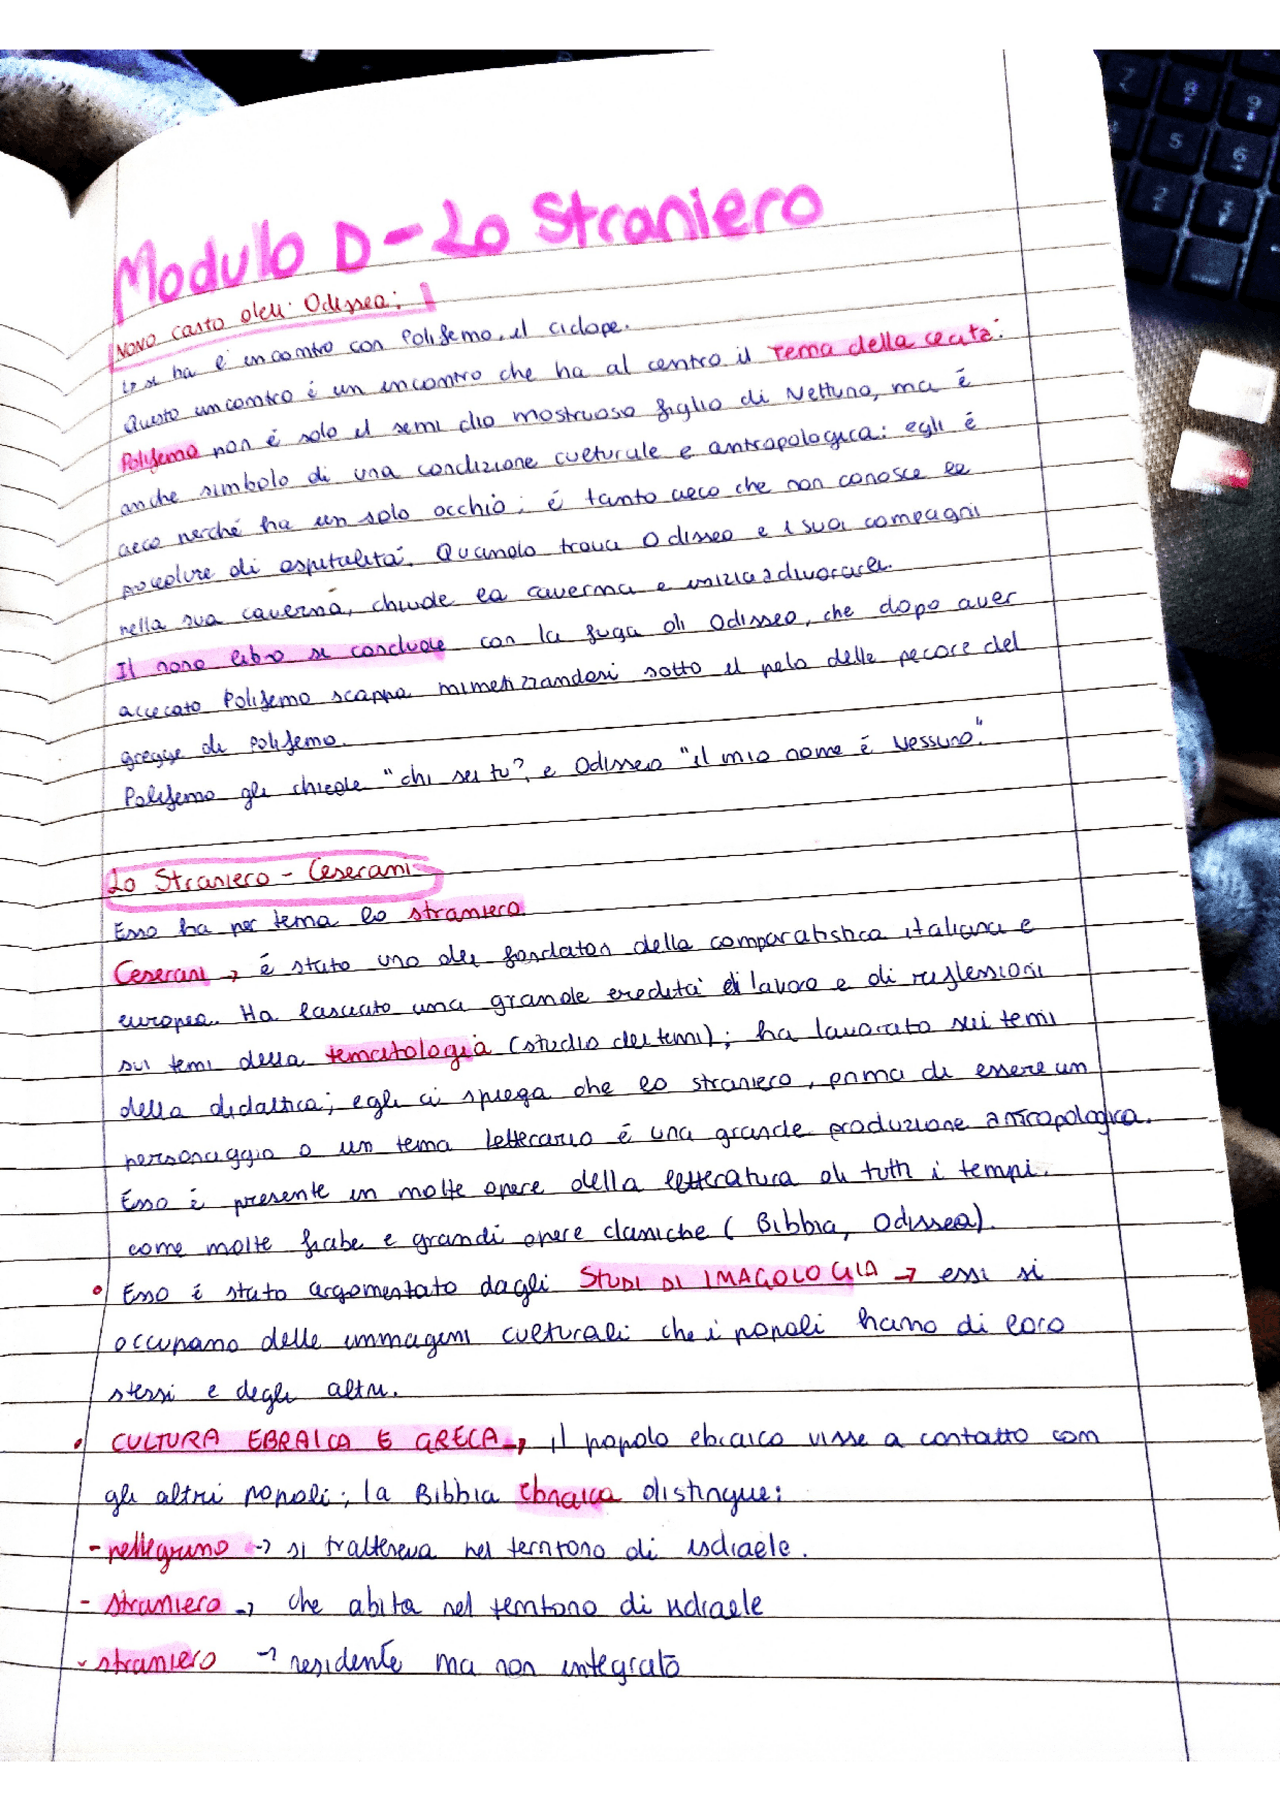 Modulo D - Lo Straniero
NONO canto dell' Odissea:
Lo si ha l'incontro con Polifemo, il ciclope.
Questo incontro è un incontro che ha al centro il tema della cecità:
Polifemo non è solo il semi dio mostruoso figlio di Nettuno, ma è
anche simbolo di una condizione culturale e antropologica: egli è
cieco perché ha un solo occhio; è tanto cieco che non conosce le
procedure di ospitalità. Quando trova Odisseo e i suoi compagni
nella sua caverna, chiude la caverna e inizia a divorarli.
Il nono libro si conclude con la fuga di Odisseo, che dopo aver
accecato Polifemo scappa mimetizzandosi sotto il pelo delle pecore del
gregge di Polifemo.
Polifemo gli chiede "chi sei tu?, e Odisseo "il mio nome è Nessuno."
Lo Straniero - Ceserani
Esso ha per tema lo straniero
Ceserani → è stato uno dei fondatori della comparatistica italiana e
europea. Ha lasciato una grande eredità di lavoro e di riflessioni
sui temi della tematologia (studio dei temi); ha lavorato sui temi
della didattica; egli ci spiega che lo straniero, prima di essere un
personaggio o un tema letterario è una grande produzione antropologica.
Esso è presente in molte opere della letteratura di tutti i tempi.
come molte fiabe e grandi opere classiche (Bibbia, Odissea).
• Esso è stato argomentato dagli STUDI DI IMAGOLOGIA → essi si
occupano delle immagini culturali che i popoli hanno di loro
stessi e degli altri.
• CULTURA EBRAICA E GRECA → il popolo ebraico visse a contatto con
gli altri popoli; la Bibbia ebraica distingue:
- pellegrino → si tratteneva nel territorio di isdraele.
- straniero → che abita nel territorio di isdraele
- straniero → residente ma non integrato
7 8 9
5 6
2 3